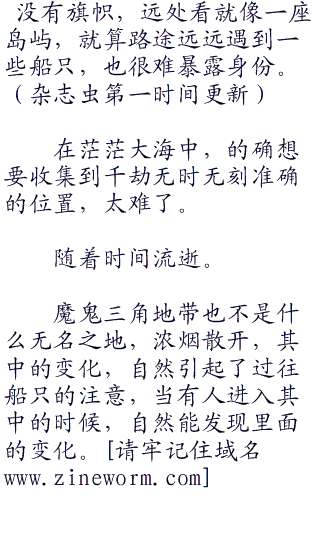 没有旗帜，远处看就像一座
岛屿，就算路途远远遇到一
些船只，也很难暴露身份。
（杂志虫第一时间更新）
在茫茫大海中，的确想
要收集到千劫无时无刻准确
的位置，太难了。
随着时间流逝。
魔鬼三角地带也不是什
么无名之地，浓烟散开，其
中的变化，自然引起了过往
船只的注意，当有人进入其
中的时候，自然能发现里面
的变化。[请牢记住域名
www.zineworm.com]